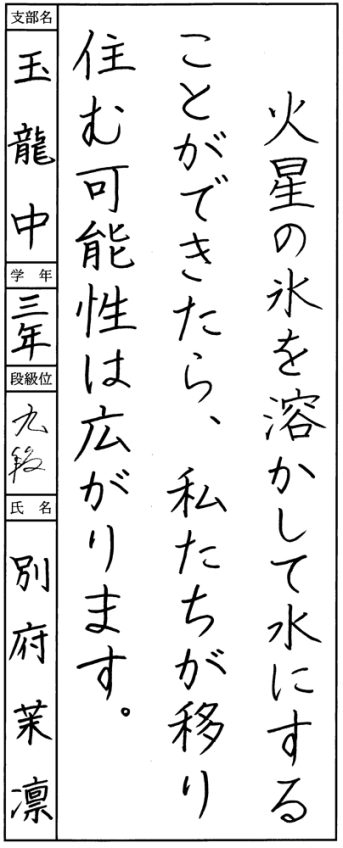 火星の氷を溶かして水にする
ことができたら、私たちが移り
住む可能性は広がります。
支部名
玉龍中
学年
三年
段級位
九段
氏名
別府茉凛